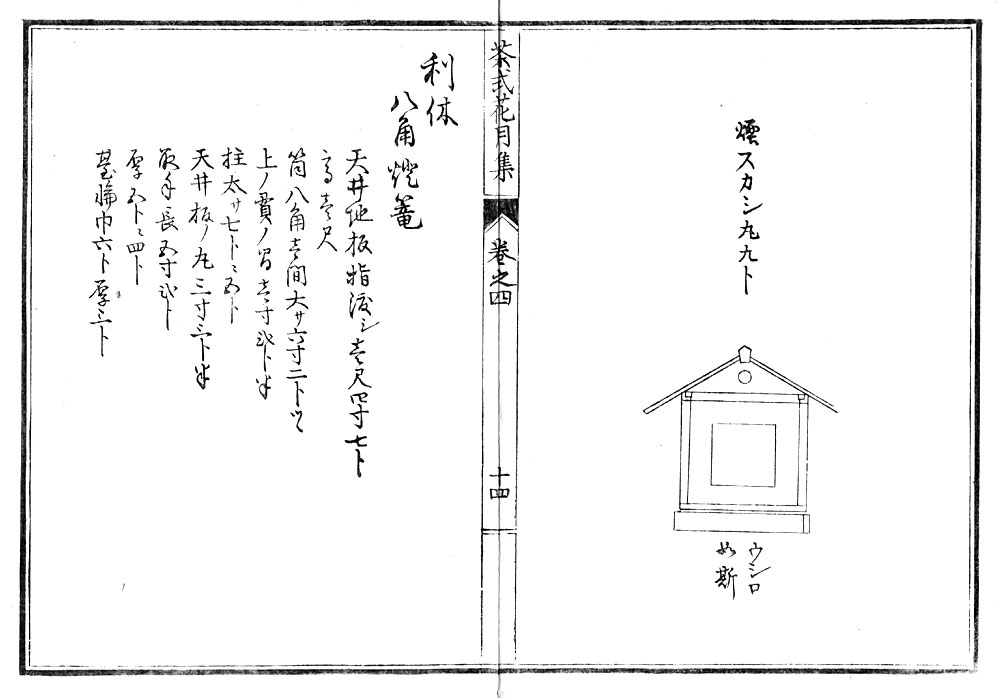 煙スカシ丸九ト
ウシロ
如斯
茶式花月集
卷之四
十四
利休
八角燈篭
天井地板指渡シ壱尺四寸七ト
高壱尺
筒八角壱間大サ六寸二トツヽ
上ノ貫ノ巾壱寸弐ト半
柱太サ七トニ五ト
天井板ノ丸三寸三ト半
取手長五寸弐ト
厚五トニ四ト
基輪巾六ト厚三ト